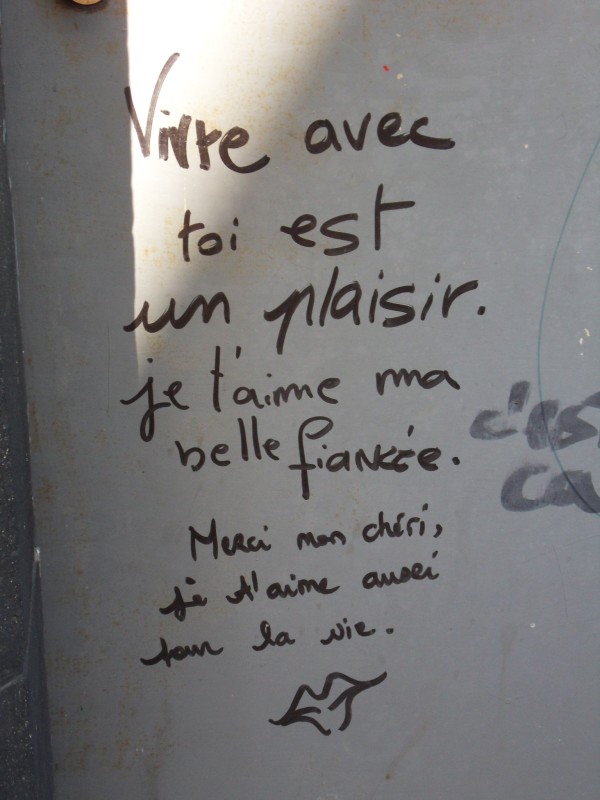 Vivre avec
toi est
un plaisir.
je t'aime ma
belle fiancée.
c'est
Merci mon chéri,
je t'aime aussi
pour la vie.